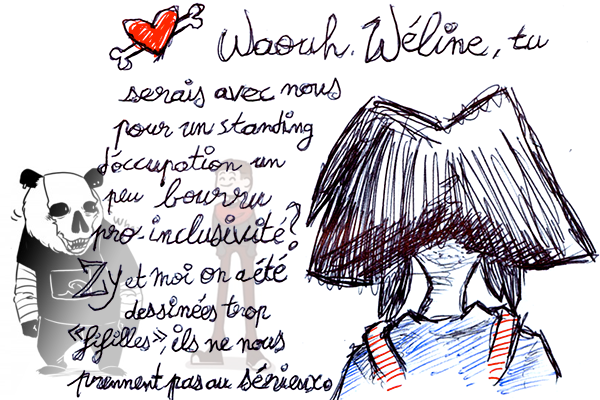 Waouh, Wéline, tu
serais avec nous
pour un standing
d'occupation un
peu bourru
pro-inclusivité?
Zy et moi on a été
dessinées trop
«fifilles», ils ne nous
prennent pas au sérieux.